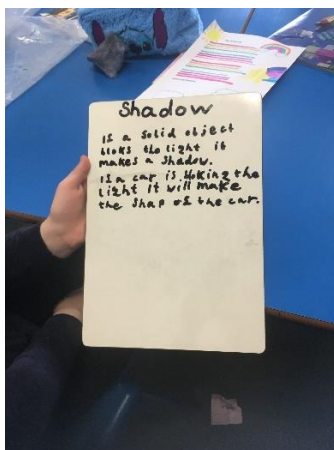 Shadow
If a solid object
bloks the light it
makes a shadow.
If a car is bloking the
light it will make
the shap of the car.